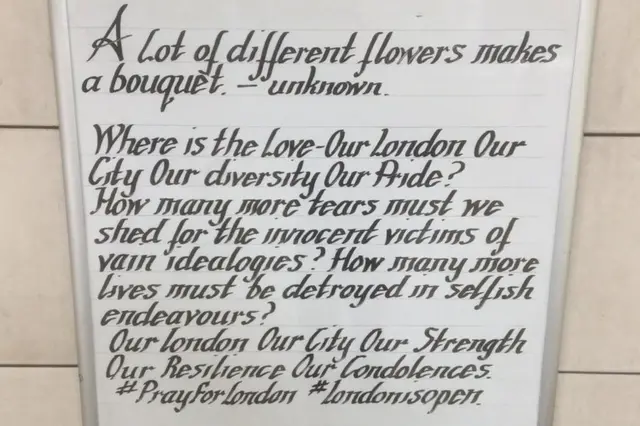 A Lot of different flowers makes
a bouquet. – unknown.
Where is the Love-Our London Our
City Our diversity Our Pride?
How many more tears must we
shed for the innocent victims of
vain idealogies? How many more
lives must be detroyed in selfish
endeavours?
Our london Our City Our Strength
Our Resilience Our Condolences.
#Prayforlondon #londonisopen.